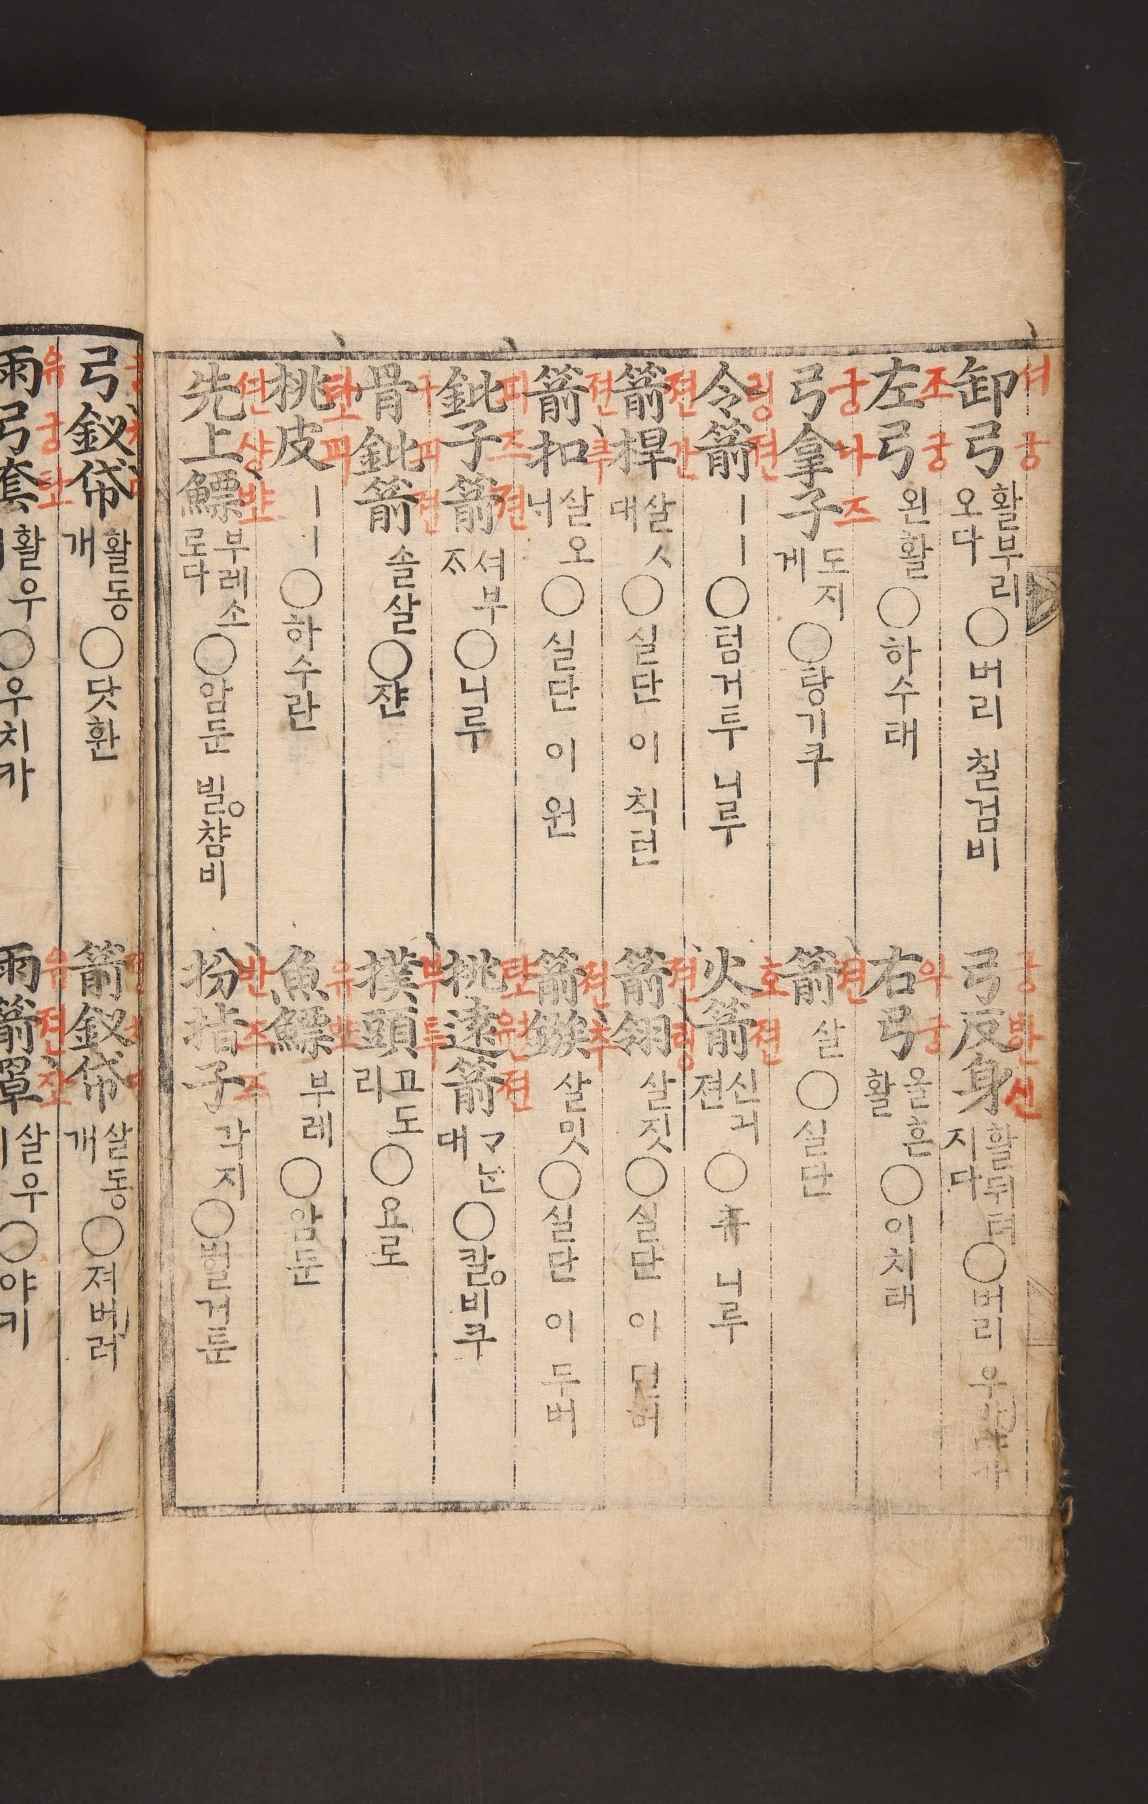 卸弓 활부리오다 ○버리 칠검비
弓反身 활뒤텨지다 ○버리
左弓 왼활 ○하수태
右弓 올흔활 ○이치태
弓拿子 도지게 ○탕기쿠
箭 살 ○실단
令箭 ｜｜ ○텀거투 니루
火箭 신긔젼 ○ 니루
箭桿 살ㅅ대 ○실단 이 칙련
箭翎 살짓 ○실단 이
箭扣 살오닉 ○실단 이 원
箭鏃 살밋 ○실단 이 두버
鈚子箭 셔부 ○니루
挑遠箭 대 ○칼비쿠
骨鈚箭 솔살 ○쟌
撲頭 고도리 ○요로
挑皮 ｜｜ ○하수란
魚鰾 부레 ○암둔
先上鰾 부레소로다 ○암둔 빌챰비
扮指子 각지 ○벌거툰
弓釵帒 활동개 ○닷환
箭釵帒 살동개 ○져버러
雨弓套 활우 ○우치카
雨箭罩 살우 ○야키
셔 궁
궁 반 신
조 궁
우 궁
궁 나 즈
젼
링 젼
호 젼
젼 간
젼 링
젼 쿠
젼 추
피 즈 젼
탸 원 젼
구 피 젼
부 투
탸 피
유 뱌
션 샹 뱌
반 즈 즈
유 궁 탸
유 젼 쟈